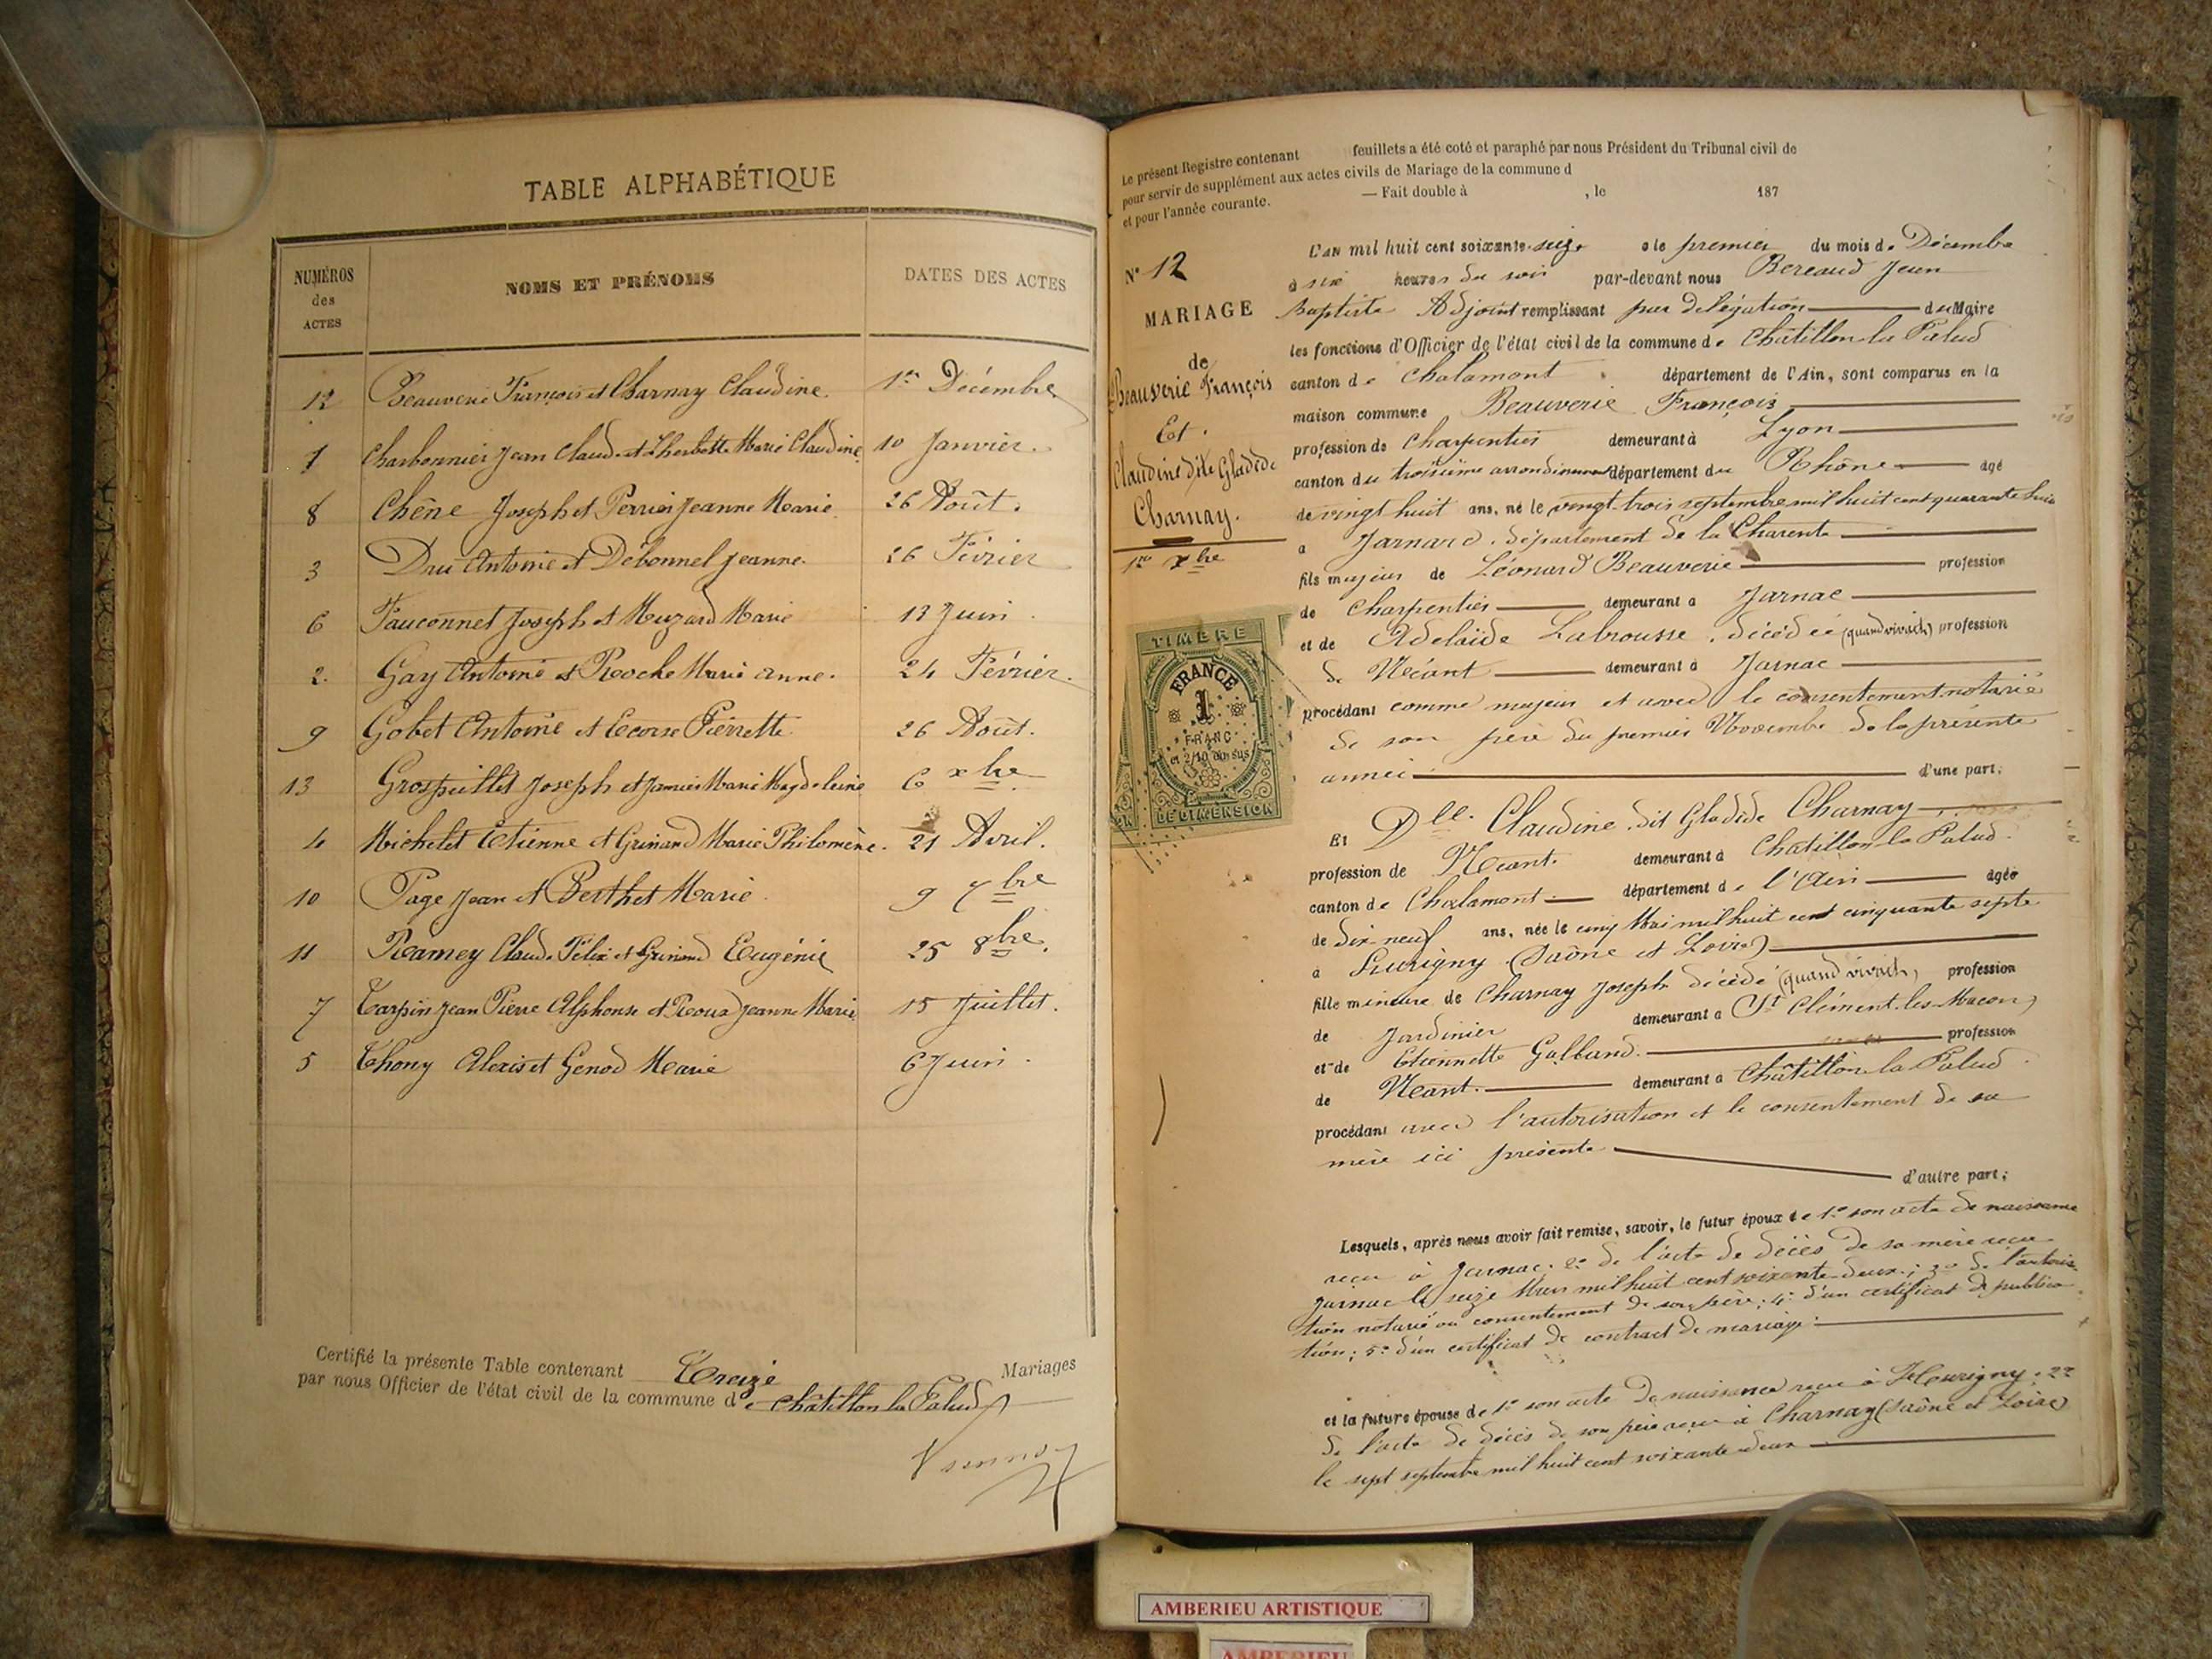 TABLE ALPHABÉTIQUE
NUMÉROS des ACTES
NOMS ET PRÉNOMS
DATES DES ACTES
12 Beauverie François et Charnay Claudine. 1er Décembre
1 Charbonnier Jean Claude et Lherbette Marie Claudine 10 Janvier.
8 Chêne Joseph et Perrier Jeanne Marie 26 Août.
3 Dru Antoine et Débonnel Jeanne. 26 Février
6 Fauconnet Joseph et Muzard Marie 12 Juin.
2. Gay Antoine et Roche Marie Anne. 24 Février.
9 Gobet Antoine et Ecorse Pierrette 26 Août.
13 Grospillet Joseph et Janier Marie Magdeleine 6 xbre.
4 Michelet Etienne et Grinand Marie Philomène. 21 Avril.
10 Page Jean et Berthet Marie. 9 7bre
11 Ramey Claude Félix et Grinand Eugénie 25 8bre.
7 Carpin Jean Pierre Alphonse et Roux Jeanne Marie 15 Juillet.
5 Thony Alexis et Genod Marie 6 Juin.
Certifié la présente Table contenant Treize Mariages
par nous Officier de l'état civil de la commune de Châtillon la Palud
Le présent Registre contenant feuillets a été coté et paraphé par nous Président du Tribunal civil de
pour servir de supplément aux actes civils de Mariage de la commune d
et pour l'année courante. — Fait double à , le 187
N° 12
MARIAGE
de
Beauverie François
Et.
Claudine dite Gladide
Charnay.
1er xbre
TIMBRE
FRANCE
1
FRANC
et 2/10 en sus
DE DIMENSION
L'an mil huit cent soixante-seize le premier du mois de Décembre
à six heures du soir par-devant nous Bereaud Jean
Baptiste Adjoint remplissant par délégation du Maire
les fonctions d'Officier de l'état civil de la commune de Châtillon la Palud
canton de Chalamont département de l'Ain, sont comparus en la
maison commune Beauverie François
profession de Charpentier demeurant à Lyon
canton du troisième arrondissement département du Rhône agé
de vingt huit ans, né le vingt-trois septembre mil huit cent quarante huit
a Jarnard. département de la Charente
fils majeur de Léonard Beauverie profession
de Charpentier demeurant a Jarnac
et de Adelaïde Labrousse. décédée (quand vivait) profession
de Néant demeurant à Jarnac
procédant comme majeur et avec le consentement notarié
de son père du premier Novembre de la présente
année d'une part;
Et Dlle. Claudine dit Gladide Charnay
profession de Néant. demeurant à Chatillon la Palud.
canton de Chalamont département de l'Ain agée
de dix-neuf ans, née le cinq Mai mil huit cent cinquante sept
à Flurigny (Saône et Loire)
fille mineure de Charnay Joseph décédé (quand vivait) profession
de Jardinier demeurant a St Clément-les-Macon,
et de Etiennette Galland. profession
de Néant. demeurant a Châtillon la Palud.
procédant avec l'autorisation et le consentement de sa
mère ici présente
d'autre part;
Lesquels, après nous avoir fait remise, savoir, le futur époux de 1° son acte de naissance
reçu à Jarnac. 2° de l'acte de décès de sa mère reçu
Jarnac le seize Mars mil huit cent soixante-deux; 3° de l'autorisa
tion notarié ou consentement de son père; 4° d'un certificat de publica
tion; 5° d'un certificat de contract de mariage.
et la future épouse de 1° son acte de naissance reçu à Fleurigny. 2°
de l'acte de décès de son père reçu à Charnay (Saône et Loire)
le sept septembre mil huit cent soixante deux
AMBERIEU ARTISTIQUE
AMBERIEU